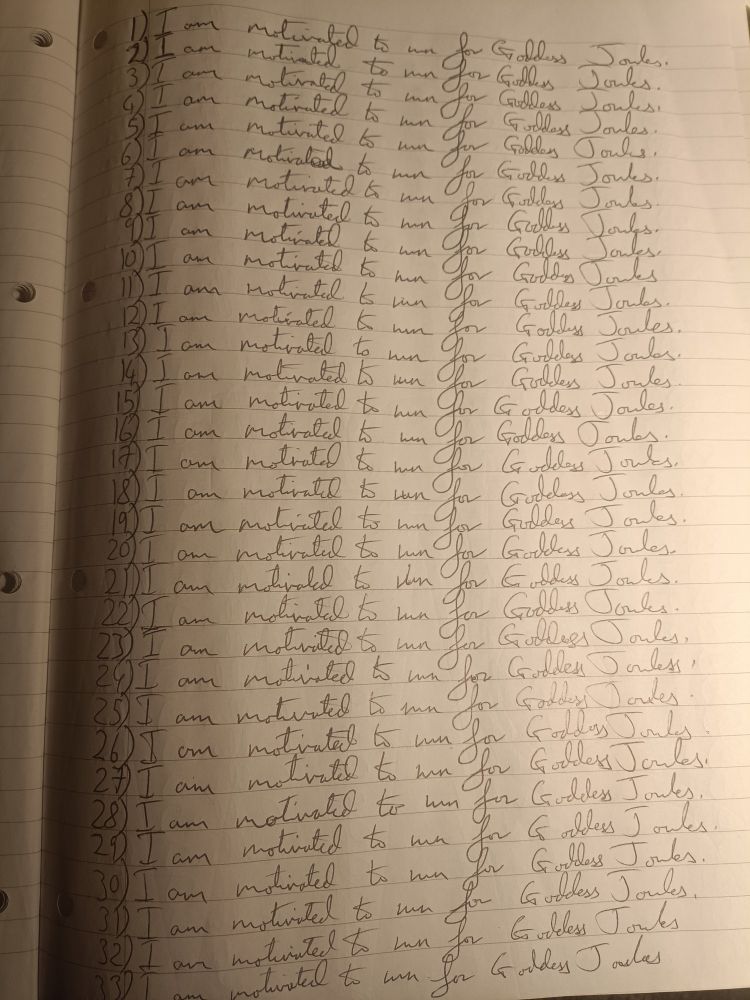 1) I am motivated to run for Goddess Joules.
2) I am motivated to run for Goddess Joules.
3) I am motivated to run for Goddess Joules.
4) I am motivated to run for Goddess Joules.
5) I am motivated to run for Goddess Joules.
6) I am motivated to run for Goddess Joules.
7) I am motivated to run for Goddess Joules.
8) I am motivated to run for Goddess Joules.
9) I am motivated to run for Goddess Joules.
10) I am motivated to run for Goddess Joules
11) I am motivated to run for Goddess Joules.
12) I am motivated to run for Goddess Joules.
13) I am motivated to run for Goddess Joules.
14) I am motivated to run for Goddess Joules.
15) I am motivated to run for Goddess Joules.
16) I am motivated to run for Goddess Joules.
17) I am motivated to run for Goddess Joules.
18) I am motivated to run for Goddess Joules.
19) I am motivated to run for Goddess Joules.
20) I am motivated to run for Goddess Joules.
21) I am motivated to run for Goddess Joules.
22) I am motivated to run for Goddess Joules.
23) I am motivated to run for Goddess Joules.
24) I am motivated to run for Goddess Jouless.
25) I am motivated to run for Goddess Joules.
26) I am motivated to run for Goddess Joules.
27) I am motivated to run for Goddess Joules.
28) I am motivated to run for Goddess Joules.
29) I am motivated to run for Goddess Joules.
30) I am motivated to run for Goddess Joules.
31) I am motivated to run for Goddess Joules.
32) I am motivated to run for Goddess Joules
33) I am motivated to run for Goddess Joules